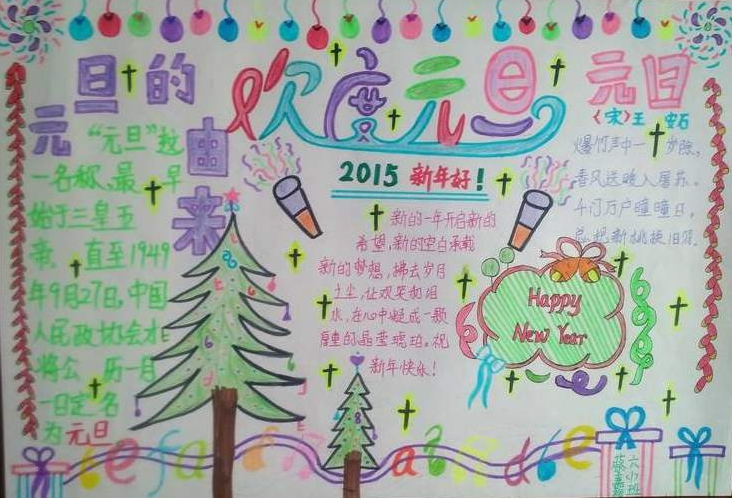 元旦的由来
“元旦”这
一名称,最早
始于三皇五
帝,直至1949
年9月27日,中国
人民政协会才
将公历一月
一日定名
为元旦
欢度元旦
2015 新年好!
新的一年开启新的
希望,新的空白承载
新的梦想,拂去岁月
土尘,让欢笑和泪
水,在心中凝成一颗
厚重的晶莹琥珀。祝
新年快乐!
元日
(宋)王安石
爆竹声中一岁除,
春风送暖入屠苏。
千门万户曈曈日,
总把新桃换旧符。
Happy
New Year